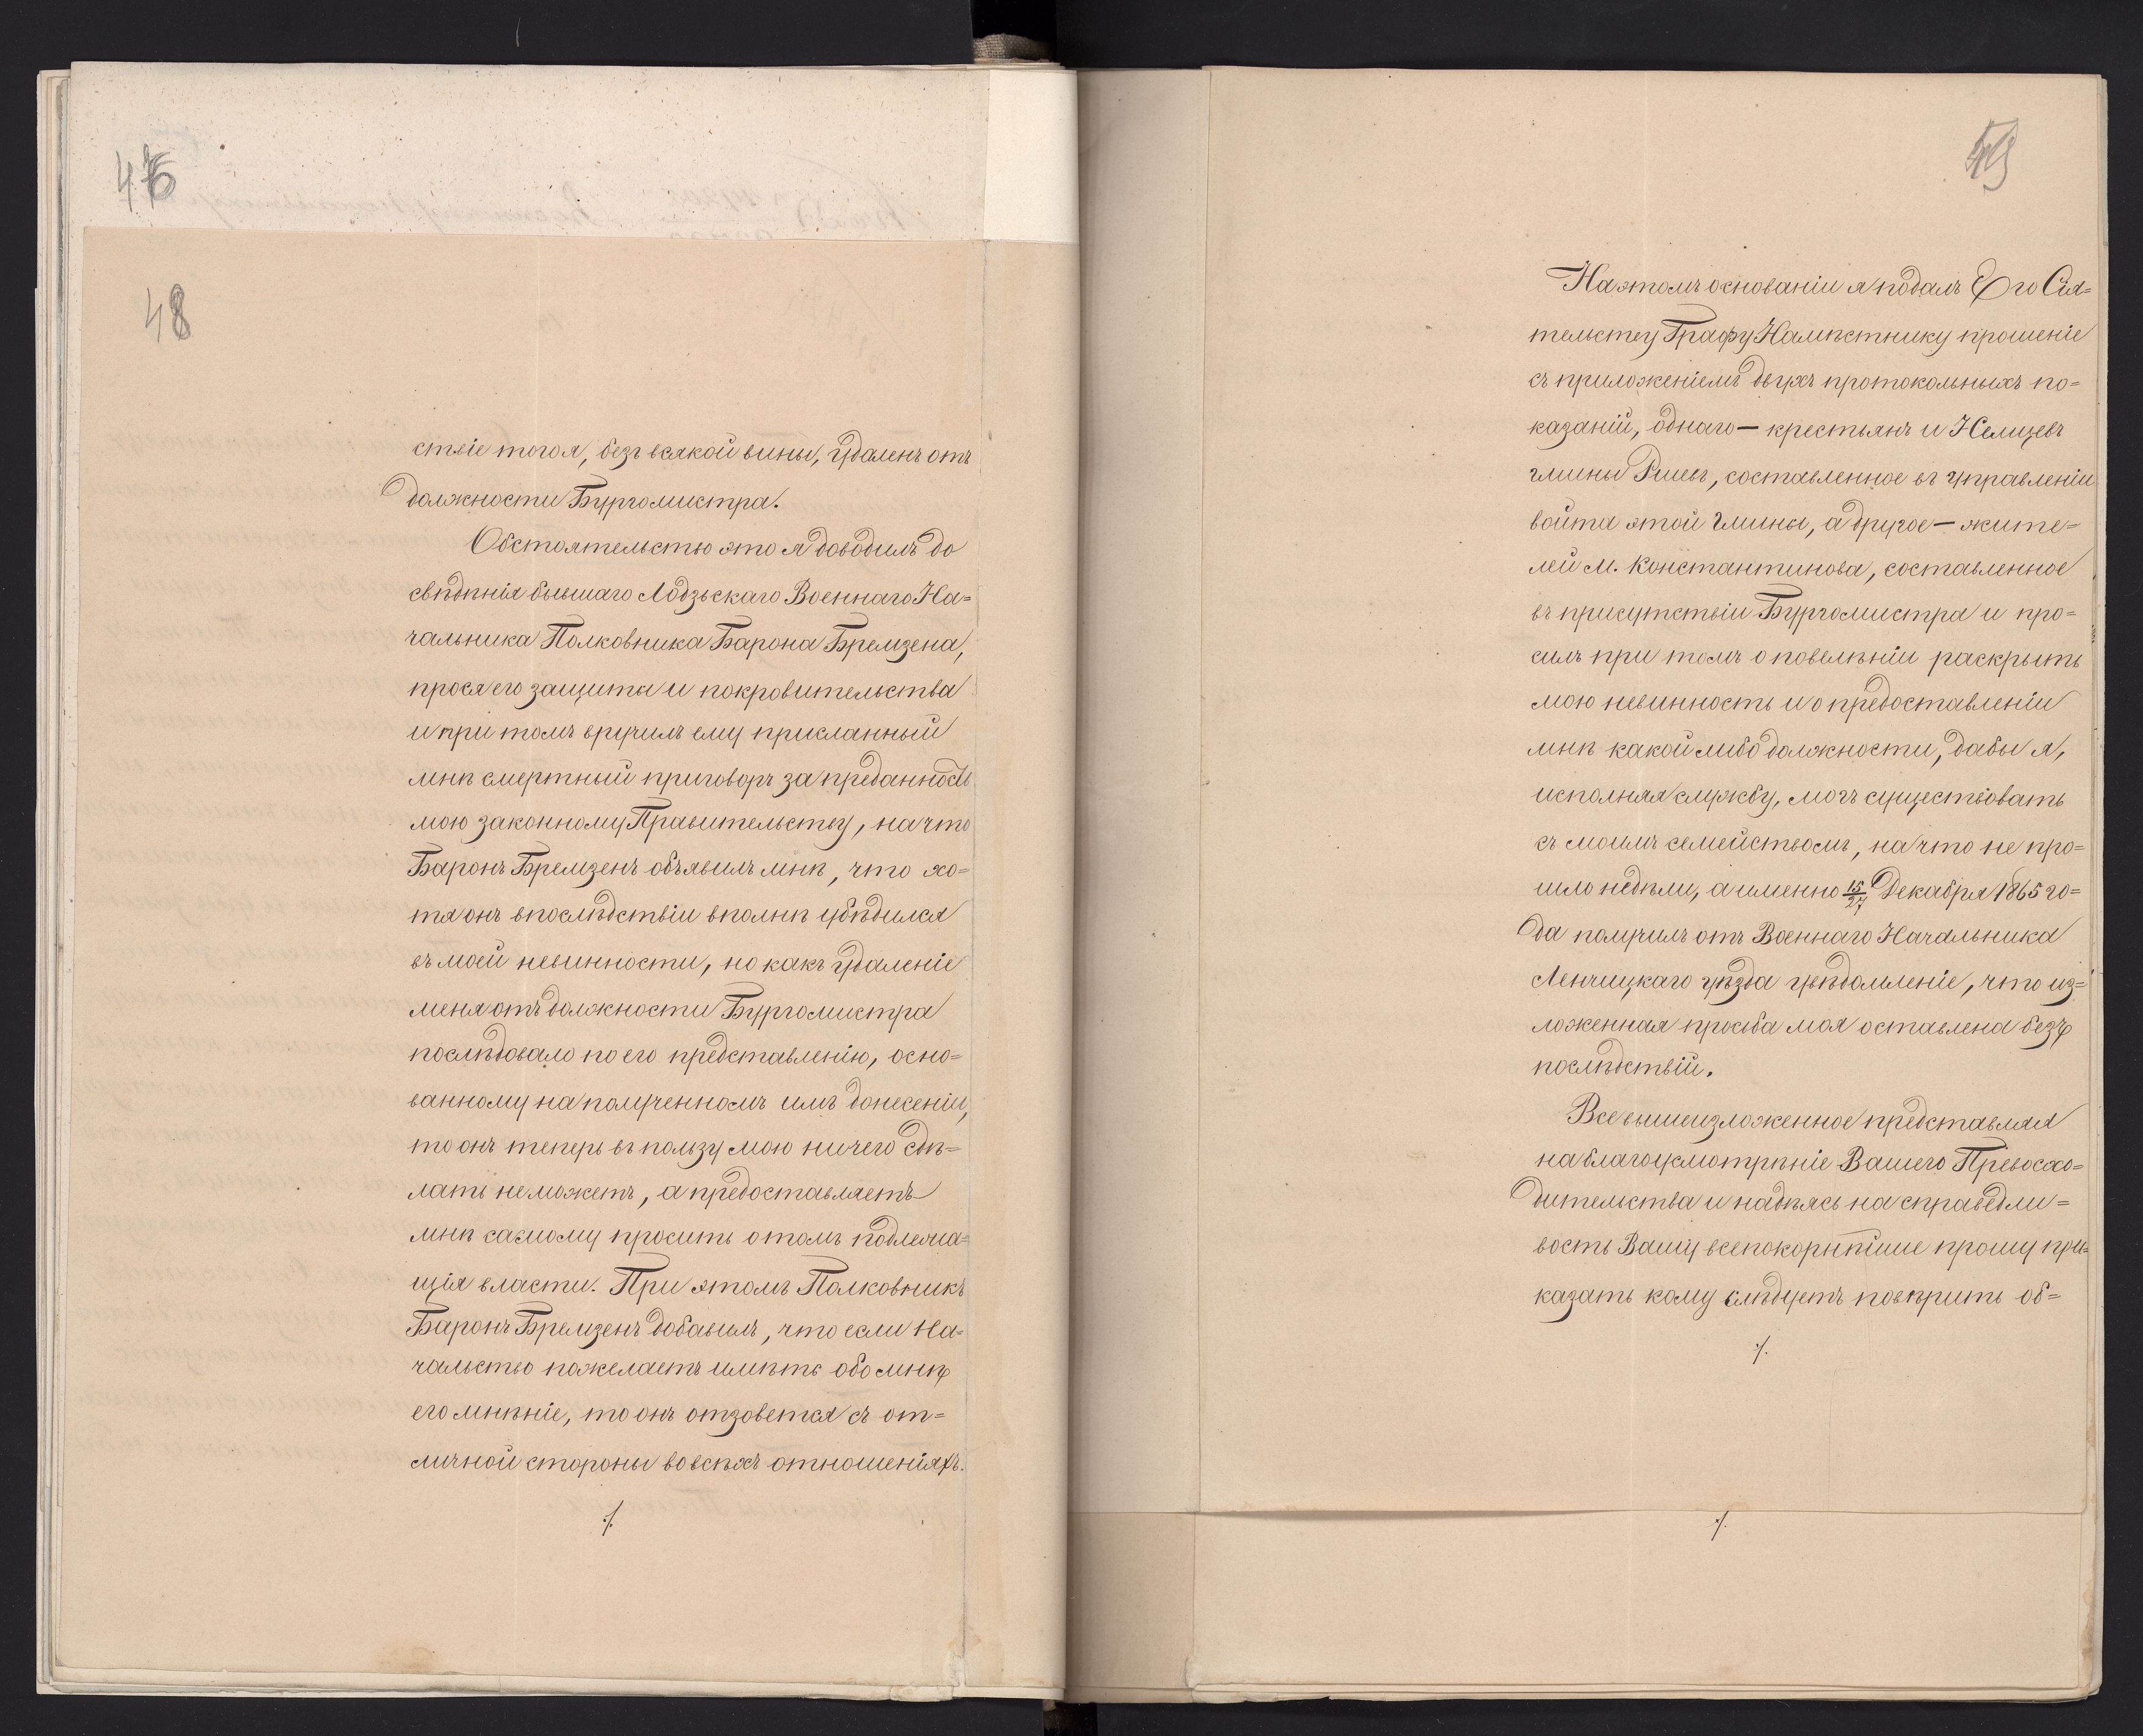 48
ствіе того я, безъ всякой вины, удаленъ отъ
должности Бургомистра.
Обстоятельство это я доводилъ до
свѣдѣнія бывшаго Лодзьскаго Военнаго На=
чальника Полковника Барона Бремзена,
прося его защиты и покровительства
и при томъ вручилъ ему присланный
мнѣ смертный приговоръ за преданность
мою законному Правительству, на что
Баронъ Бремзенъ объявилъ мнѣ, что хо=
тя онъ впослѣдствіи вполнѣ убѣдился
въ моей невинности, но какъ удаленіе
меня отъ должности Бургомистра
послѣдовало по его представленію, осно=
ванному на полученномъ имъ донесеніи,
то онъ теперь въ пользу мою ничего сдѣ=
лать не можетъ, а предоставляетъ
мнѣ самому просить о томъ подлежа=
щія власти. При этомъ Полковникъ
Баронъ Бремзенъ добавилъ, что если На=
чальство пожелаетъ имѣть обо мнѣ
его мнѣніе, то онъ отзовется съ от=
личной стороны во всѣхъ отношеніяхъ.
·/.
На этомъ основаніи я подалъ Его Сія=
тельству Графу Намѣстнику прошеніе
съ приложеніемъ двухъ протокольныхъ по=
казаній, однаго — крестьянъ и Немцевъ
гмины Ршевъ, составленное въ управленіи
войта этой гмины, а другое — жите=
лей м. Константинова, составленное
въ присутствіи Бургомистра и про=
силъ при томъ о повелѣніи раскрыть
мою невинность и о предоставленіи
мнѣ какой либо должности, дабы я,
исполняя службу, могъ существовать
съ моимъ семействомъ, на что не про=
шло недѣли, а именно 15/27 Декабря 1865 го=
да получилъ отъ Военнаго Начальника
Ленчицкаго уѣзда увѣдомленіе, что из=
ложенная просьба моя оставлена безъ
послѣдствій.
Все вышеизложенное представляя
на благоусмотрѣніе Вашего Превосхо=
дительства и надѣясь на справедли=
вость Вашу всепокорнѣйше прошу при=
казать кому слѣдуетъ повѣрить об=
·/.
·/.